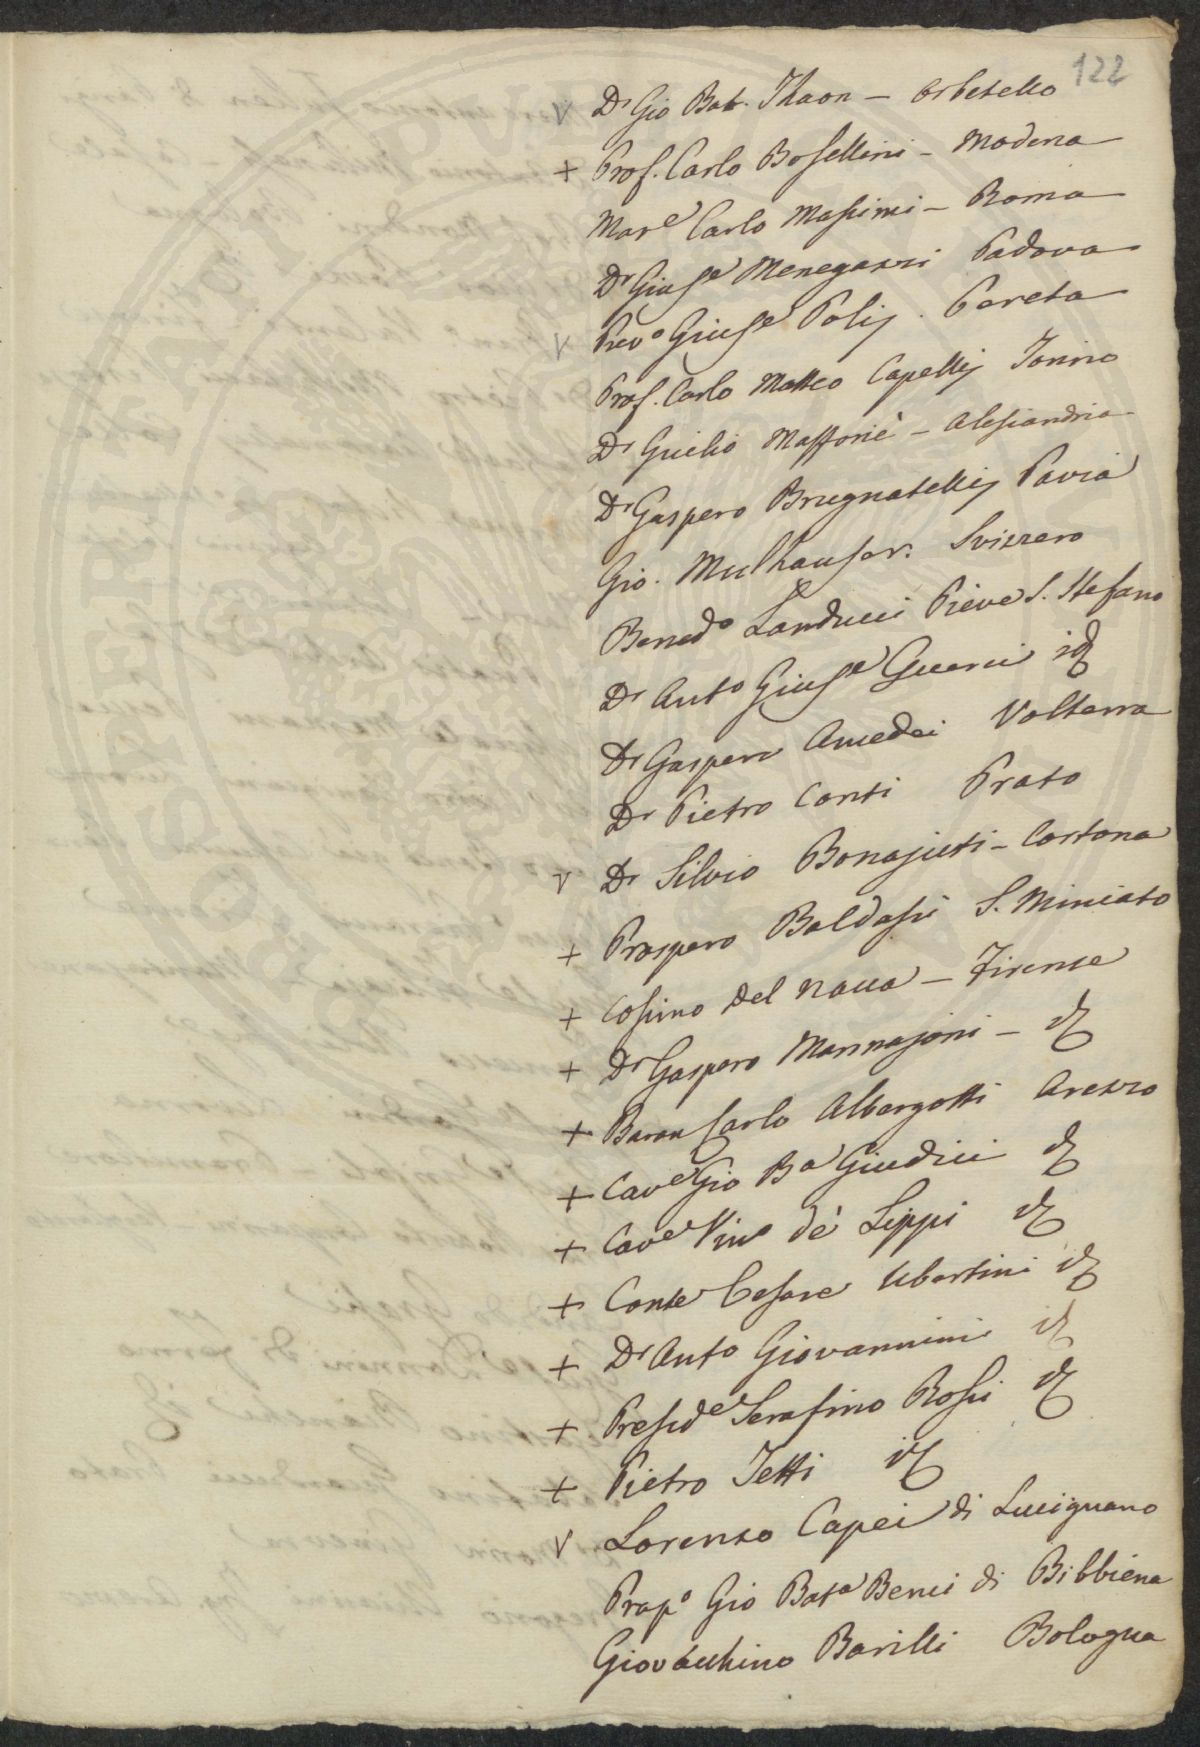 122
V Dr Gio Bat. Thaon - Orbetello
+ Prof. Carlo Bosellini - Modena
Mare Carlo Massimi - Roma
Dr Giuse Menegazzi Padova
V Prevo Giuse Polij. Pereta
Prof. Carlo Matteo Capellij Torino
Dr Giulio Mafforiè - Alessandria
Dr Gaspero Brugnatellij Pavia
Gio. Mulhauser. Svizzero
Benedo Landucci Pieve S. Stefano
Dr Anto Giuse Guerci id
Dr Gaspero Amedei Volterra
Dr Pietro Conti Prato
V Dr Silvio Bonajuti - Cortona
+ Prospero Baldassi S. Miniato
+ Cosimo Del Nacca - Firenze
+ Dr Gaspero Mannajoni - id
+ Baron Carlo Albergotti Arezzo
+ Cave Gio Ba Giudici id
+ Cave Vino de' Lippi id
+ Conte Cesare Ubertini id
+ Dr Anto Giovannini id
+ Preside Serafino Rossi id
+ Pietro Tetti id
V Lorenzo Capei di Lucignano
Propo Gio Bata Benci di Bibbiena
Giovacchino Barilli Bologna